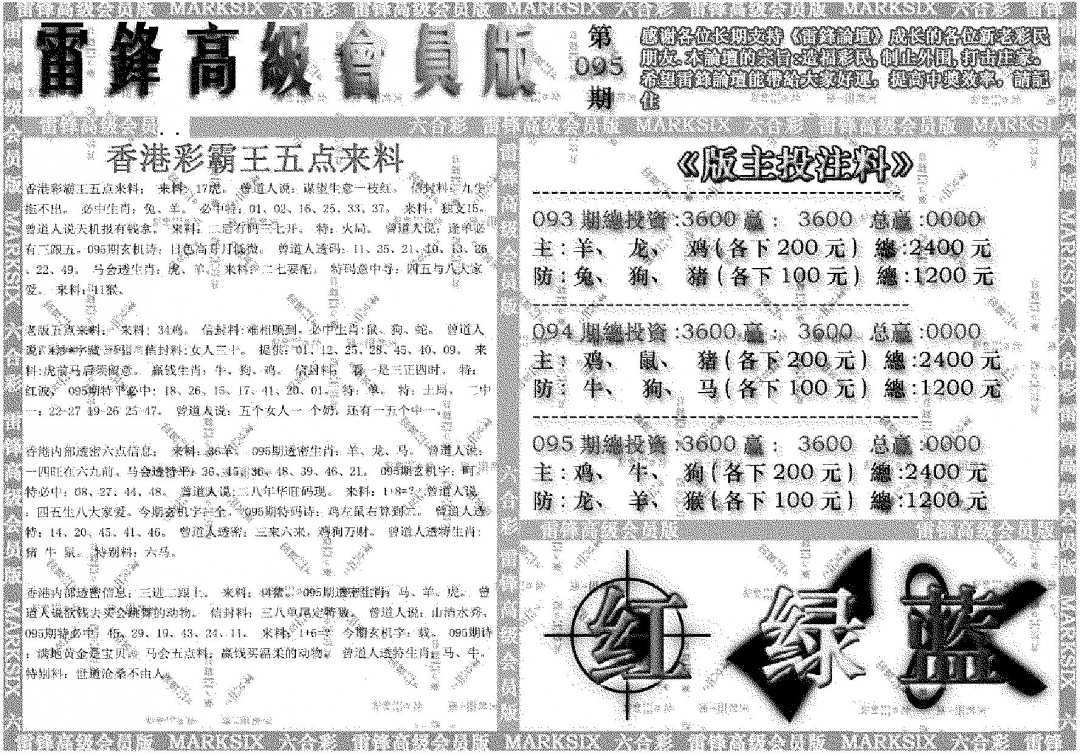 雷鋒高級會員版
第
095
期
感谢各位长期支持《雷鋒論壇》成长的各位新老彩民
朋友.本論壇的宗旨:造福彩民,制止外围,打击庄家.
希望雷鋒論壇能帶給大家好运，提高中奖效率，請記
住
雷锋高级会员 六合彩 雷锋高级会员版 MARKSIX 六合彩 雷锋高级会员版 MARKSI
香港彩霸王五点来料
香港彩霸王五点来料： 来料：17虎。 曾道人说：谋望生意一枝红。 信封料：九牛
拖不出。 必中生肖：兔、羊。 必中特：01、02、16、25、33、37。 来料：独支15。
曾道人说天机报有钱拿。 来料：二后有码三七开。 特：火局。 曾道人说：逢单必
有三跟五。095期玄机诗：日色高 月 微。 曾道人透码：11、35、21、40、13、26
、22、49。 马会透生肖：虎、羊、 来料：二七要配。 特码意中寻：四五与八大家
爱。 来料：11猴。
老版五点来料： 来料：34鸡。 信封料:难相顾到。必中生肖:鼠、狗、蛇。 曾道人
说 字藏 信封料:女人三十。 提供：01、12、25、28、45、40、09。 来
料:虎前马后须留意。 赢钱生肖：牛、狗、鸡。 信封料: 看一是三正四时。 特：
红波。 095期特平必中：18、26、15、17、41、20、01。 特：单。 特：土局。 二中
一：22-27 19-26 25-47。 曾道人说：五个女人一个奶，还有一五个中一。
香港内部透密六点信息： 来料：36羊。 095期透密生肖：羊、龙、马。 曾道人说：
一四旺在六九前。马会透特平：26、15、36、48、39、46、21。 095期玄机字：
特必中：08、27、44、48。 曾道人说:二八年华旺码现。 来料：1+8=? 曾道人说
：四五生八大家爱。今期玄机字：全。 095期特码诗：鸡左鼠右算到 。 曾道人透
特：14、20、45、41、46。 曾道人透密：三来六来，鸡狗万财。 曾道人透特生肖：
猪 牛 鼠。 特别料：六马。
香港内部透密信息：三进二跟上。 来料： 猪。 095期透密生肖：马、羊、虎。 曾
道人说欲钱去买会跳舞的动物。 信封料：三八单尾定特数。 曾道人说：山清水秀。
095期特必中：45、29、19、43、24、11。 来料：1+6=? 今期玄机字：载。 095期诗
：满地黄金是宝贝。马会五点料：赢钱买温柔的动物。 曾道人透特生肖：马、牛。
特别料：世道沧桑不由人。
《版主投注料》
093 期總投资:3600 赢： 3600 总赢:0000
主:羊、 龙、 鸡(各下200元) 總:2400元
防:兔、 狗、 猪(各下100元) 總:1200元
094 期總投资:3600 赢： 3600 总赢:0000
主: 鸡、 鼠、 猪(各下200元) 總:2400元
防: 牛、 狗、 马(各下100元) 總:1200元
095 期總投资:3600 赢： 3600 总赢:0000
主:鸡、 牛、 狗(各下200元) 總:2400元
防:龙、 羊、 猴(各下100元) 總:1200元
雷锋高级会员版 雷锋高级会员版
红 绿 蓝
雷锋高级会员版 MARKSIX 六合彩 雷锋高级会员版 MARKSIX 六合彩 雷锋高级会员版 MARKSIX 六合彩 雷锋